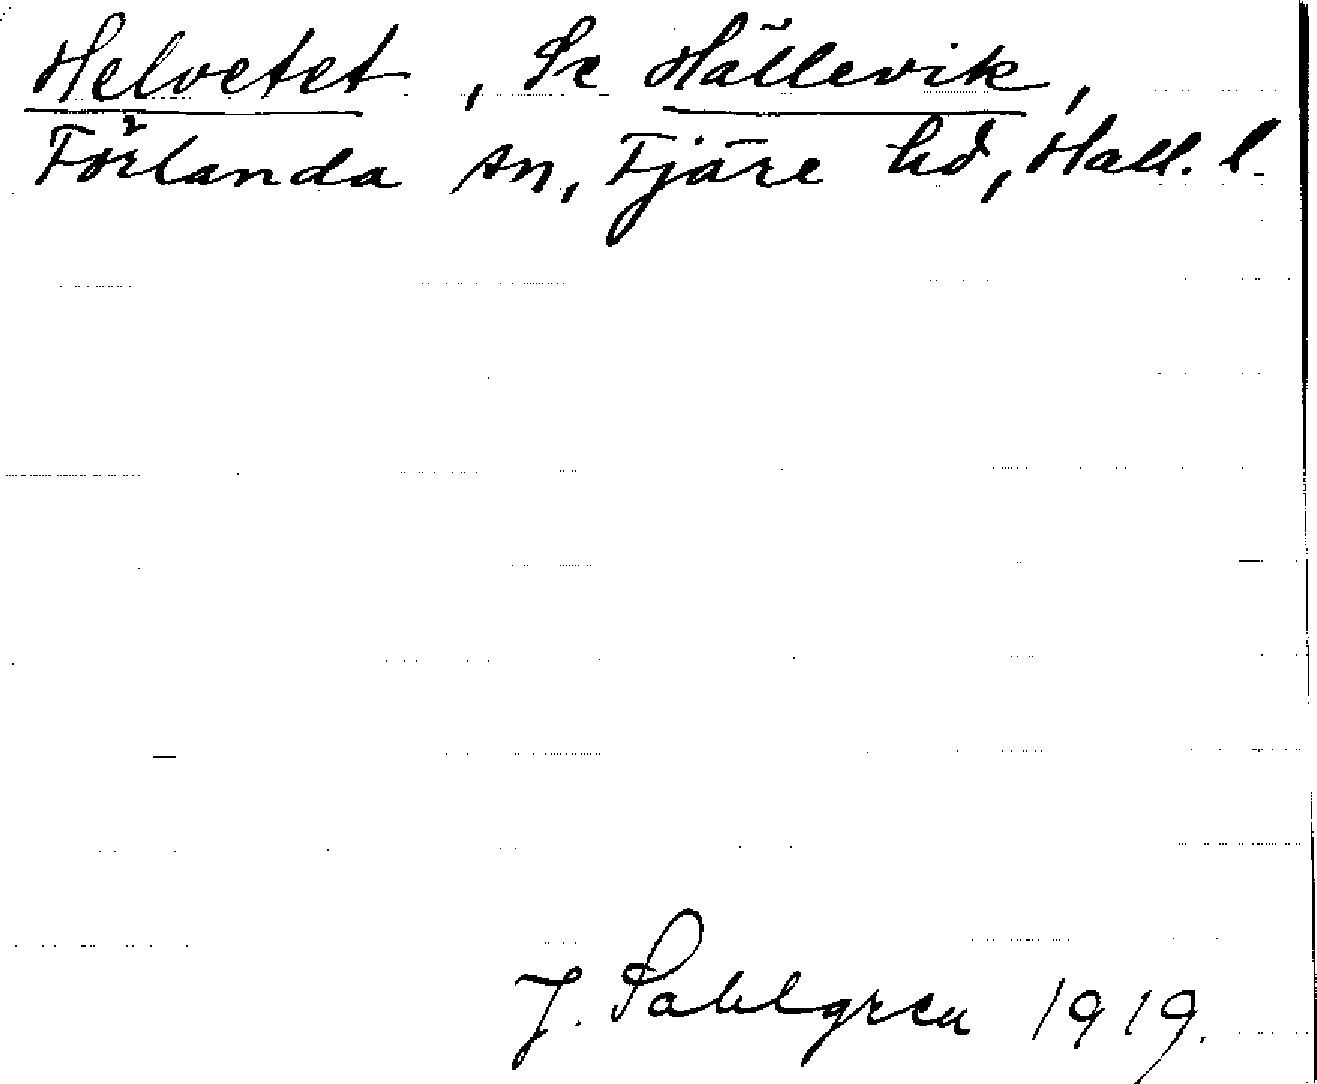 Helvetet, Se Hällevik,
Förlanda sn, Fjäre hd, Hall. l.
J. Sahlgren 1919.